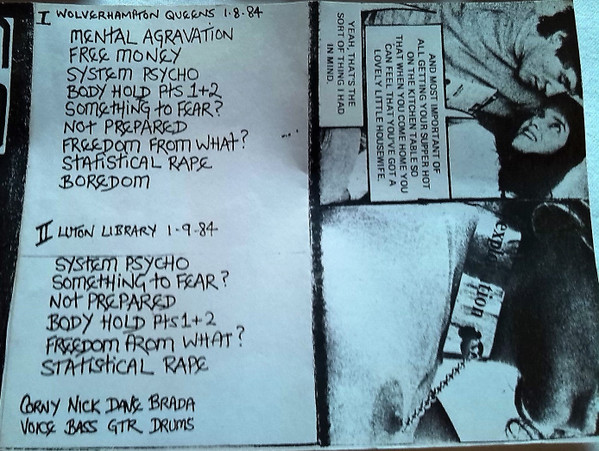 I WOLVERHAMPTON QUEENS 1.8.84
MENTAL AGRAVATION
FREE MONEY
SYSTEM PSYCHO
BODY HOLD Pts 1+2
SOMETHING TO FEAR?
NOT PREPARED
FREEDOM FROM WHAT?
STATISTICAL RAPE
BOREDOM
II LUTON LIBRARY 1-9-84
SYSTEM PSYCHO
SOMETHING TO FEAR?
NOT PREPARED
BODY HOLD Pts 1+2
FREEDOM FROM WHAT?
STATISTICAL RAPE
CORNY NICK DAVE BRADA
VOICE BASS GTR DRUMS
AND MOST IMPORTANT OF
ALL, GETTING YOUR SUPPER HOT
ON THE KITCHEN TABLE SO
THAT WHEN YOU COME HOME YOU
CAN FEEL THAT YOU'VE GOT A
LOVELY LITTLE HOUSEWIFE.
YEAH, THAT'S THE
SORT OF THING I HAD
IN MIND.
expl
tion